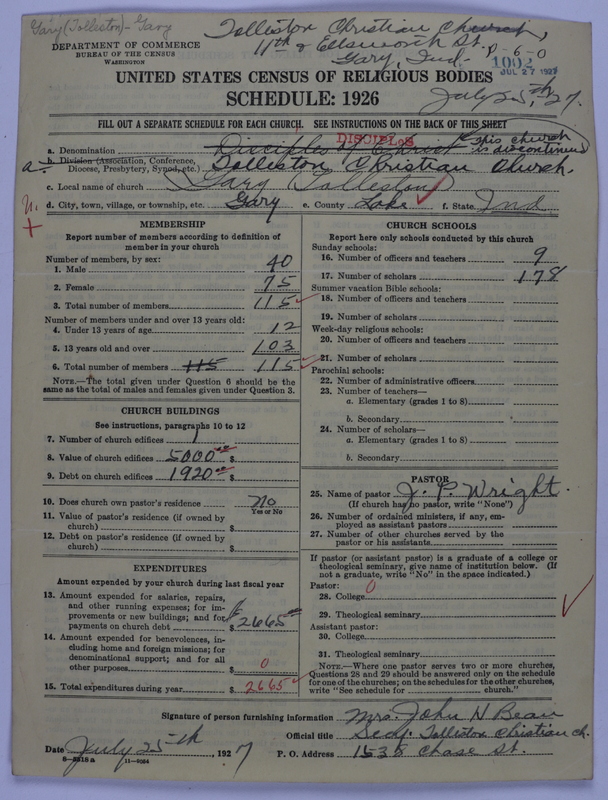 Gary (Tolleston) - Gary
Tolleston Christian Church,
11th & Ellsworth St.
Gary, Ind.
P-6-0
1002
JUL 27 1927
July 25th 27.
DEPARTMENT OF COMMERCE
BUREAU OF THE CENSUS
WASHINGTON
UNITED STATES CENSUS OF RELIGIOUS BODIES
SCHEDULE: 1926
FILL OUT A SEPARATE SCHEDULE FOR EACH CHURCH. SEE INSTRUCTIONS ON THE BACK OF THIS SHEET
DISCIPLES
this church is discontinued
a. Denomination Disciples of Christ
b. Division (Association, Conference,
Diocese, Presbytery, Synod, etc.) Tolleston Christian Church.
a
c. Local name of church Gary (Tolleston)
d. City, town, village, or township, etc. Gary e. County Lake f. State Ind.
MEMBERSHIP
Report number of members according to definition of
member in your church
Number of members, by sex:
1. Male 40
2. Female 75
3. Total number of members 115
Number of members under and over 13 years old:
4. Under 13 years of age 12
5. 13 years old and over 103
6. Total number of members 115 115
NOTE.—The total given under Question 6 should be the
same as the total of males and females given under Question 3.
CHURCH BUILDINGS
See instructions, paragraphs 10 to 12
7. Number of church edifices 1
8. Value of church edifices $ 5000 00
9. Debt on church edifices $ 1920 00
10. Does church own pastor's residence no
Yes or No
11. Value of pastor's residence (if owned by
church) $
12. Debt on pastor's residence (if owned by
church) $
EXPENDITURES
Amount expended by your church during last fiscal year
13. Amount expended for salaries, repairs,
and other running expenses; for im-
provements or new buildings; and for
payments on church debt $ 2665 00
14. Amount expended for benevolences, in-
cluding home and foreign missions; for
denominational support; and for all
other purposes $ 0
15. Total expenditures during year $ 2665
CHURCH SCHOOLS
Report here only schools conducted by this church
Sunday schools:
16. Number of officers and teachers 9
17. Number of scholars 178
Summer vacation Bible schools:
18. Number of officers and teachers
19. Number of scholars
Week-day religious schools:
20. Number of officers and teachers
21. Number of scholars
Parochial schools:
22. Number of administrative officers
23. Number of teachers—
a. Elementary (grades 1 to 8)
b. Secondary
24. Number of scholars—
a. Elementary (grades 1 to 8)
b. Secondary
PASTOR
25. Name of pastor J. P. Wright.
(If church has no pastor, write "None")
26. Number of ordained ministers, if any, em-
ployed as assistant pastors
27. Number of other churches served by the
pastor or his assistants
If pastor (or assistant pastor) is a graduate of a college or
theological seminary, give name of institution below. (If
not a graduate, write "No" in the space indicated.)
Pastor:
28. College 0
29. Theological seminary
Assistant pastor:
30. College
31. Theological seminary
NOTE.—Where one pastor serves two or more churches,
Questions 28 and 29 should be answered only on the schedule
for one of the churches; on the schedules for the other churches,
write "See schedule for church."
Signature of person furnishing information Mrs. John N Bean
Official title Secy. Tolleston Christian Ch.
Date July 25th 1927
P. O. Address 1538 Chase St.
8-3318a 11-9034